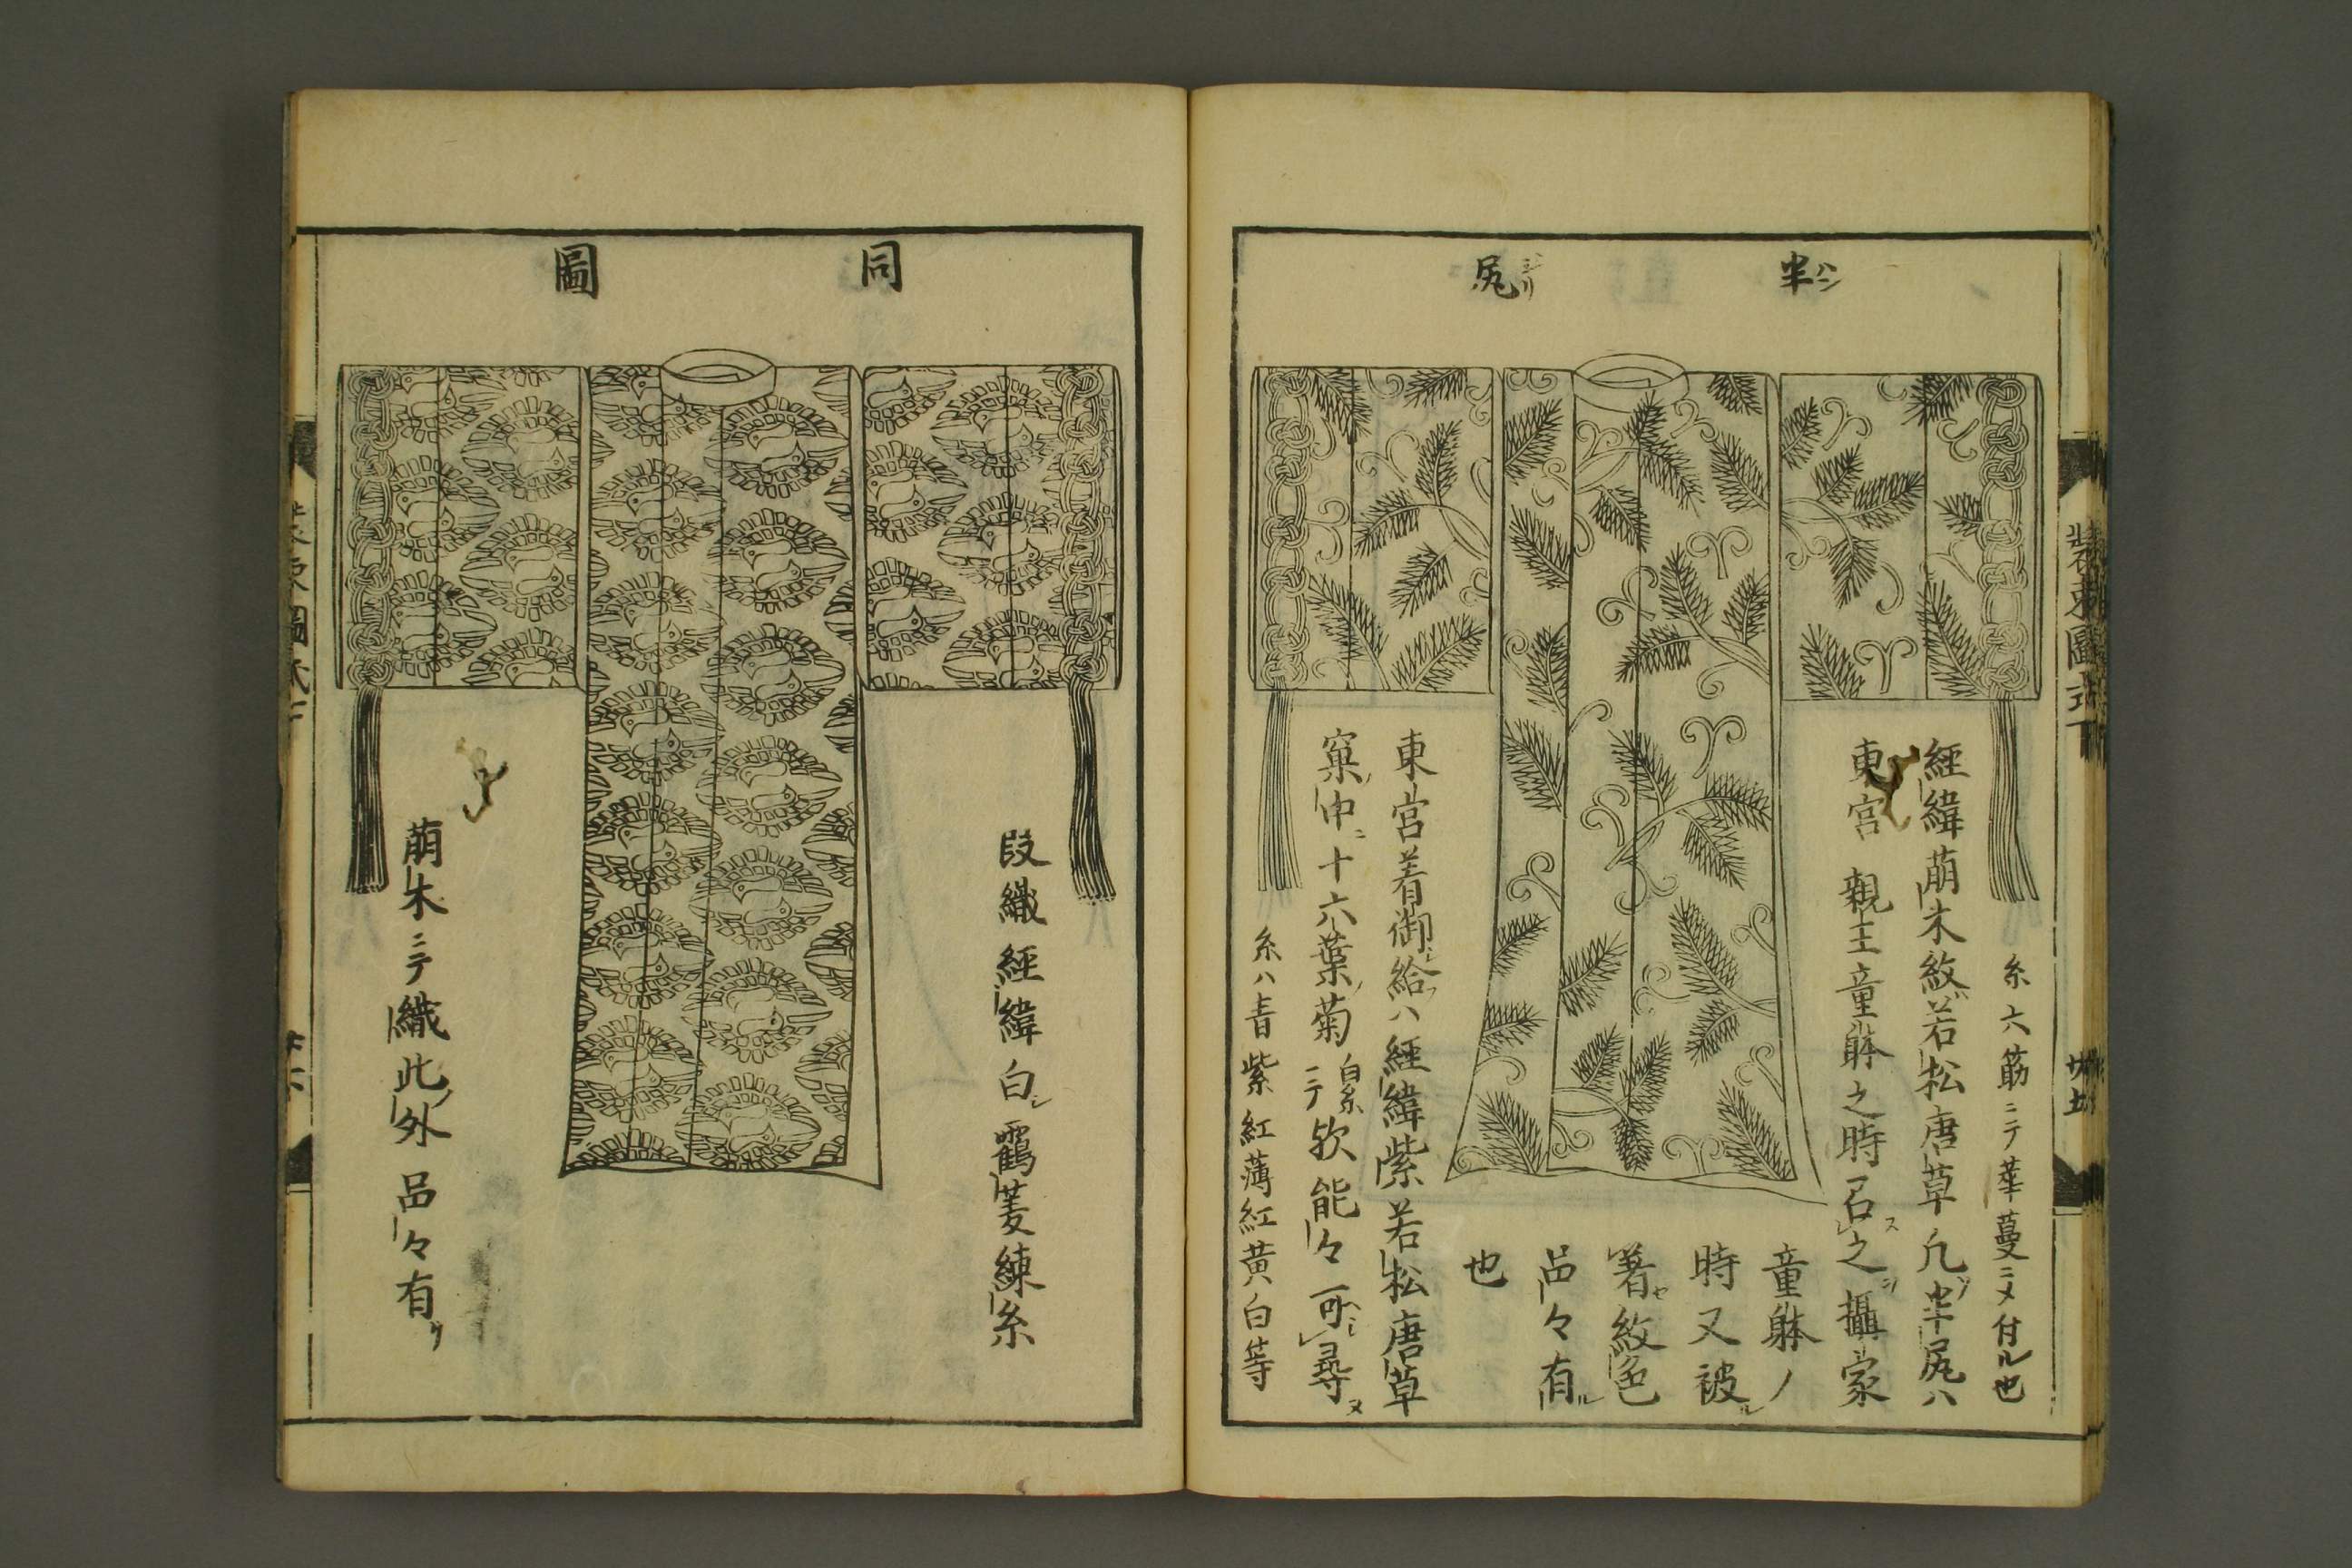 半ハン 尻ジリ
糸六筋ニテ華蔓ニメ付ル也
經緯萠木紋若松唐草凡半尻ハ
東宮 親王童躰之時召ス之攝家
童躰ノ
時又被ル
著セ紋色
品々有ル
也
東宮着御給ハ經緯紫若松唐草
窠中ニ十六葉菊白糸ニテ欤能々可尋ヌ
糸ハ青紫紅薄紅黄白等
裝束圖式下
廿五
同圖
段織經緯白シ靏菱練糸
萠木ニテ織此外品々有リ
裝束圖式下
廿六